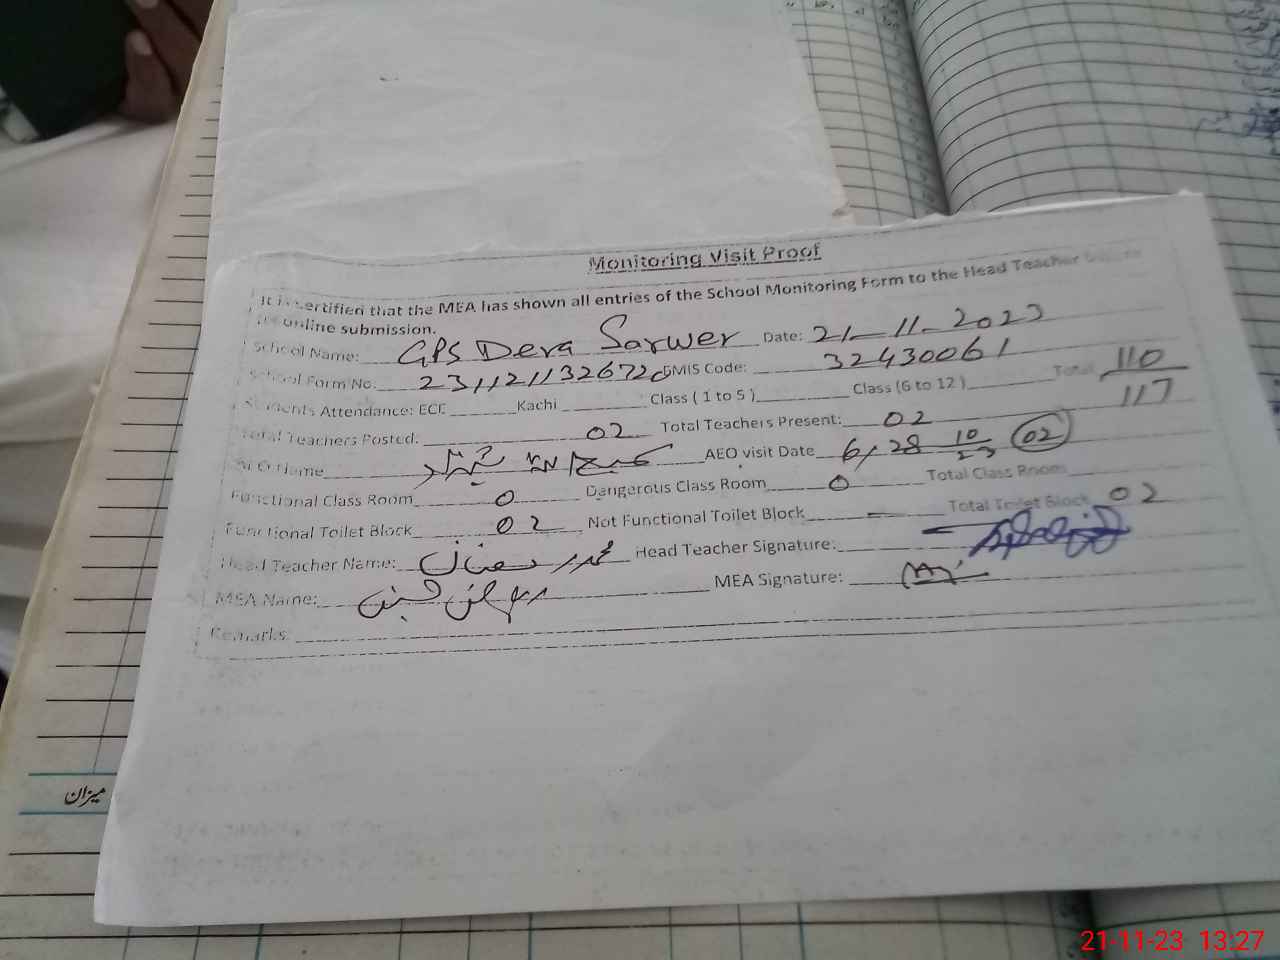 Monitoring Visit Proof
It is certified that the MEA has shown all entries of the School Monitoring Form to the Head Teacher before
its online submission.
School Name: GPS Dera Sarwer Date: 21-11-2023
School Form No. 2311211326720 EMIS Code: 32430061
Students Attendance: ECE Kachi Class ( 1 to 5 ) Class (6 to 12 ) Total 110
117
Total Teachers Posted: 02 Total Teachers Present: 02
AEO Name AEO visit Date 6, 28 10 23 02
Functional Class Room 0 Dangerous Class Room 0 Total Class Room
Functional Toilet Block 02 Not Functional Toilet Block - Total Toilet Block 02
Head Teacher Name: محمد رمضان Head Teacher Signature:
MEA Name: MEA Signature:
Remarks:
میزان
21-11-23 13:27